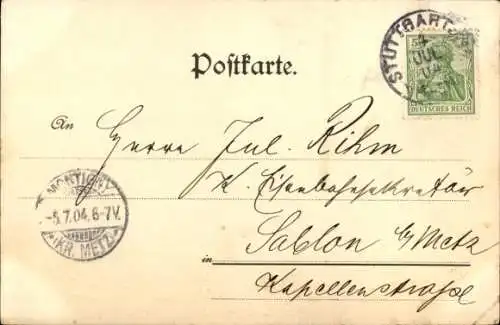 STUTTGART
4
JUL
04
5
DEUTSCHES REICH
Postkarte.
An Herrn Jul. Rihm
K. Eisenbahnsekretär
MONTIGNY
-5.7.04.6-7V.
* (KR. METZ) *
in Sablon b/Metz
Kapellenstraße